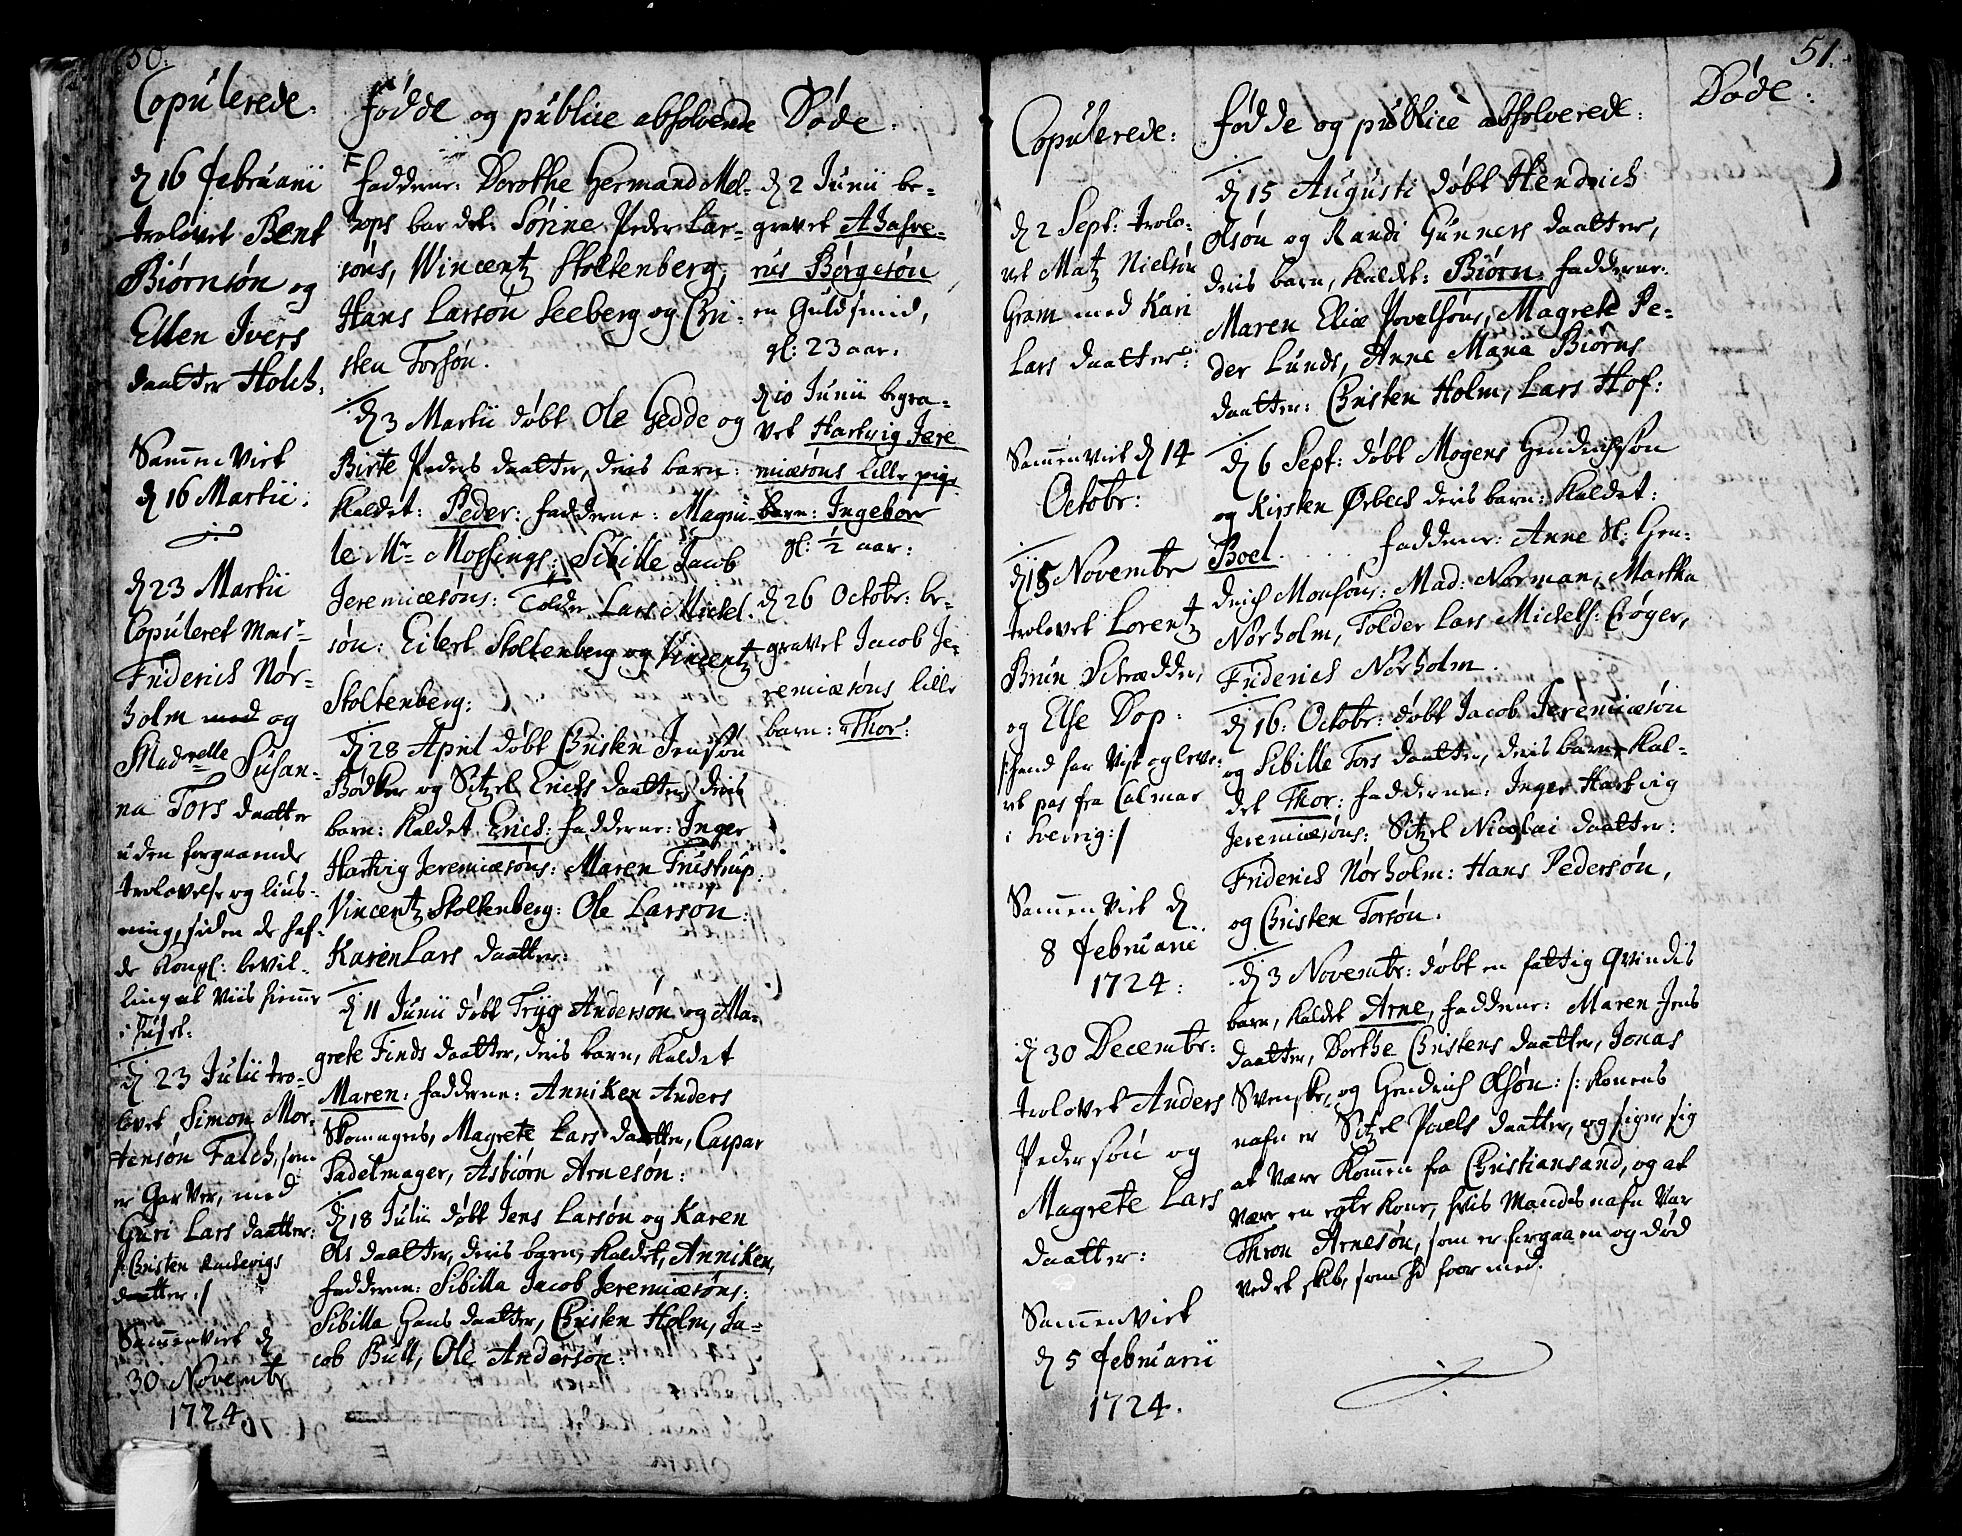 50.
Copulerede.
d 16 Februarii
trolovet Bent
Biørnsøn og
Ellen Ivers
daatter Holch.
Sammenviet
d 16 Martii.
d 23 Martii
Copuleret Monsr
Friderich Nør-
holm med og
Madmelle Susan-
na Tors daatter
uden forgaaende
trolovelse og lius-
ning, siden de haf-
de Kongl: bevil-
ling at viis hiemme
i huset.
d 23 Julii tro-
lovet Simon Mor-
tensøn Falch, som
er Garver, med
Guri Lars daatter:
/: Christen Ludevigs
daatter :/
Sammenviet d
30 Novembr
1724
Fødde og publice absolverede
F
Faddere: Dorothe Hermand Mel-
zops bar det. Sørine Peder Lar-
søns, Wincentz Stoltenberg,
Hans Larsøn Seeberg og Chri-
sten Torsøn.
d 3 Martii døbt Ole Gedde og
Birte Peders daatter, deris barn:
Kaldet: Peder: Fadderne: Magni-
le Mr Mossings: Sibille Jacob
Jeremiæsøns: Tolder Lars Mickel-
søn: Eilert Stoltenberg og Vincentz
Stoltenberg:
d 28 April døbt Christen Jensøn
Bødker og Sitzel Erichs daatter, deris
barn: Kaldet Erich: Fadderne: Inger
Hartvig Jeremiæsøns: Maren Trustrup:
Vincentz Stoltenberg: Ole Larsøn:
Karen Lars daatter:
d 11 Junii døbt Tryg Andersøn og Ma-
grete Finds daatter, deris barn, Kaldet
Maren: Fadderne: Anniken Anders
Skomagers, Magrete Lars daatter, Caspar
Sadelmager, Asbiørn Arnesøn:
d 18 Julii døbt Jens Larsøn og Karen
Ols daatter, deris barn, Kaldet, Anniken,
Fadderne: Sibilla Jacob Jeremiæsøns:
Sibilla Hans daatter, Christen Holm, Ja-
cob Bull, Ole Andersøn:
Døde.
d 2 Junii be-
gravet Ahasve-
rus Børgesøn
en Guldsmid,
gl: 23 aar.
d 10 Junii begra-
vet Hartvig Jere
miæsøns lille pige
barn: Ingebor
gl: 1/2 aar:
d 26 Octobr: be-
gravet Jacob Je-
remiæsøns lille
barn: Thor:
51.
Copulerede:
d 2 Sept: trolo-
vet Matz Nielsøn
Gram med Kari
Lars daatter:
Sammenviet d 14
Octobr:
d 15 Novembr
trolovet Lorentz
Brun Skrædder,
og Else Dop:
/: hand har vist og leve-
ret pas fra Calmar
i Sverrig :/
Sammenviet d
8 Februarii
1724:
d 30 Decembr:
trolovet Anders
Pedersøn og
Magrete Lars
daatter:
Sammenviet
d 5 Februarii
1724.
Fødde og publicè absolverede:
d 15 Augusti døbt Hendrich
Olsøn og Randi Gunners daatter,
deris barn, Kaldet: Biørn: Fadderne:
Maren Eliæ Povelsøns, Magrete Pe-
der Lunds, Anne Maria Biørns
daatter: Christen Holm, Lars Hof:
d 6 Sept: døbt Mogens Hendrichsøn
og Kirsten Ørbech deris barn: Kaldet:
Boel. Fadderne: Anne Sl: Hen-
drich Monsøns: Mad: Norman, Martha
Nørholm, Tolder Lars Michels: Crøger,
Friderich Nørholm.
d 16: Octobr: døbt Jacob Jeremiæsøn
og Sibille Tors daatter, deris barn, Kal-
det Thor: Fadderne: Inger Hartvig
Jeremiæsøns: Sitzel Nicolai daatter:
Friderich Nørholm: Hans Pedersøn,
og Christen Torsøn.
d 3 Novembr: døbt en fattig Qvindis
barn, Kaldet Arne, Fadderne: Maren Jens
daatter, Dorthe Christens daatter, Jonas
Svenske, og Hendrich Olsøn: /: Konens
nafn er Sitzel Povels daatter, og siger sig
at være Kommen fra Christiansand, og at
være en egte Kone, hvis Mandes nafn var
Thron Arnesøn, som er forgaaen og død
ved et skib, som hd foer med.
Døde: